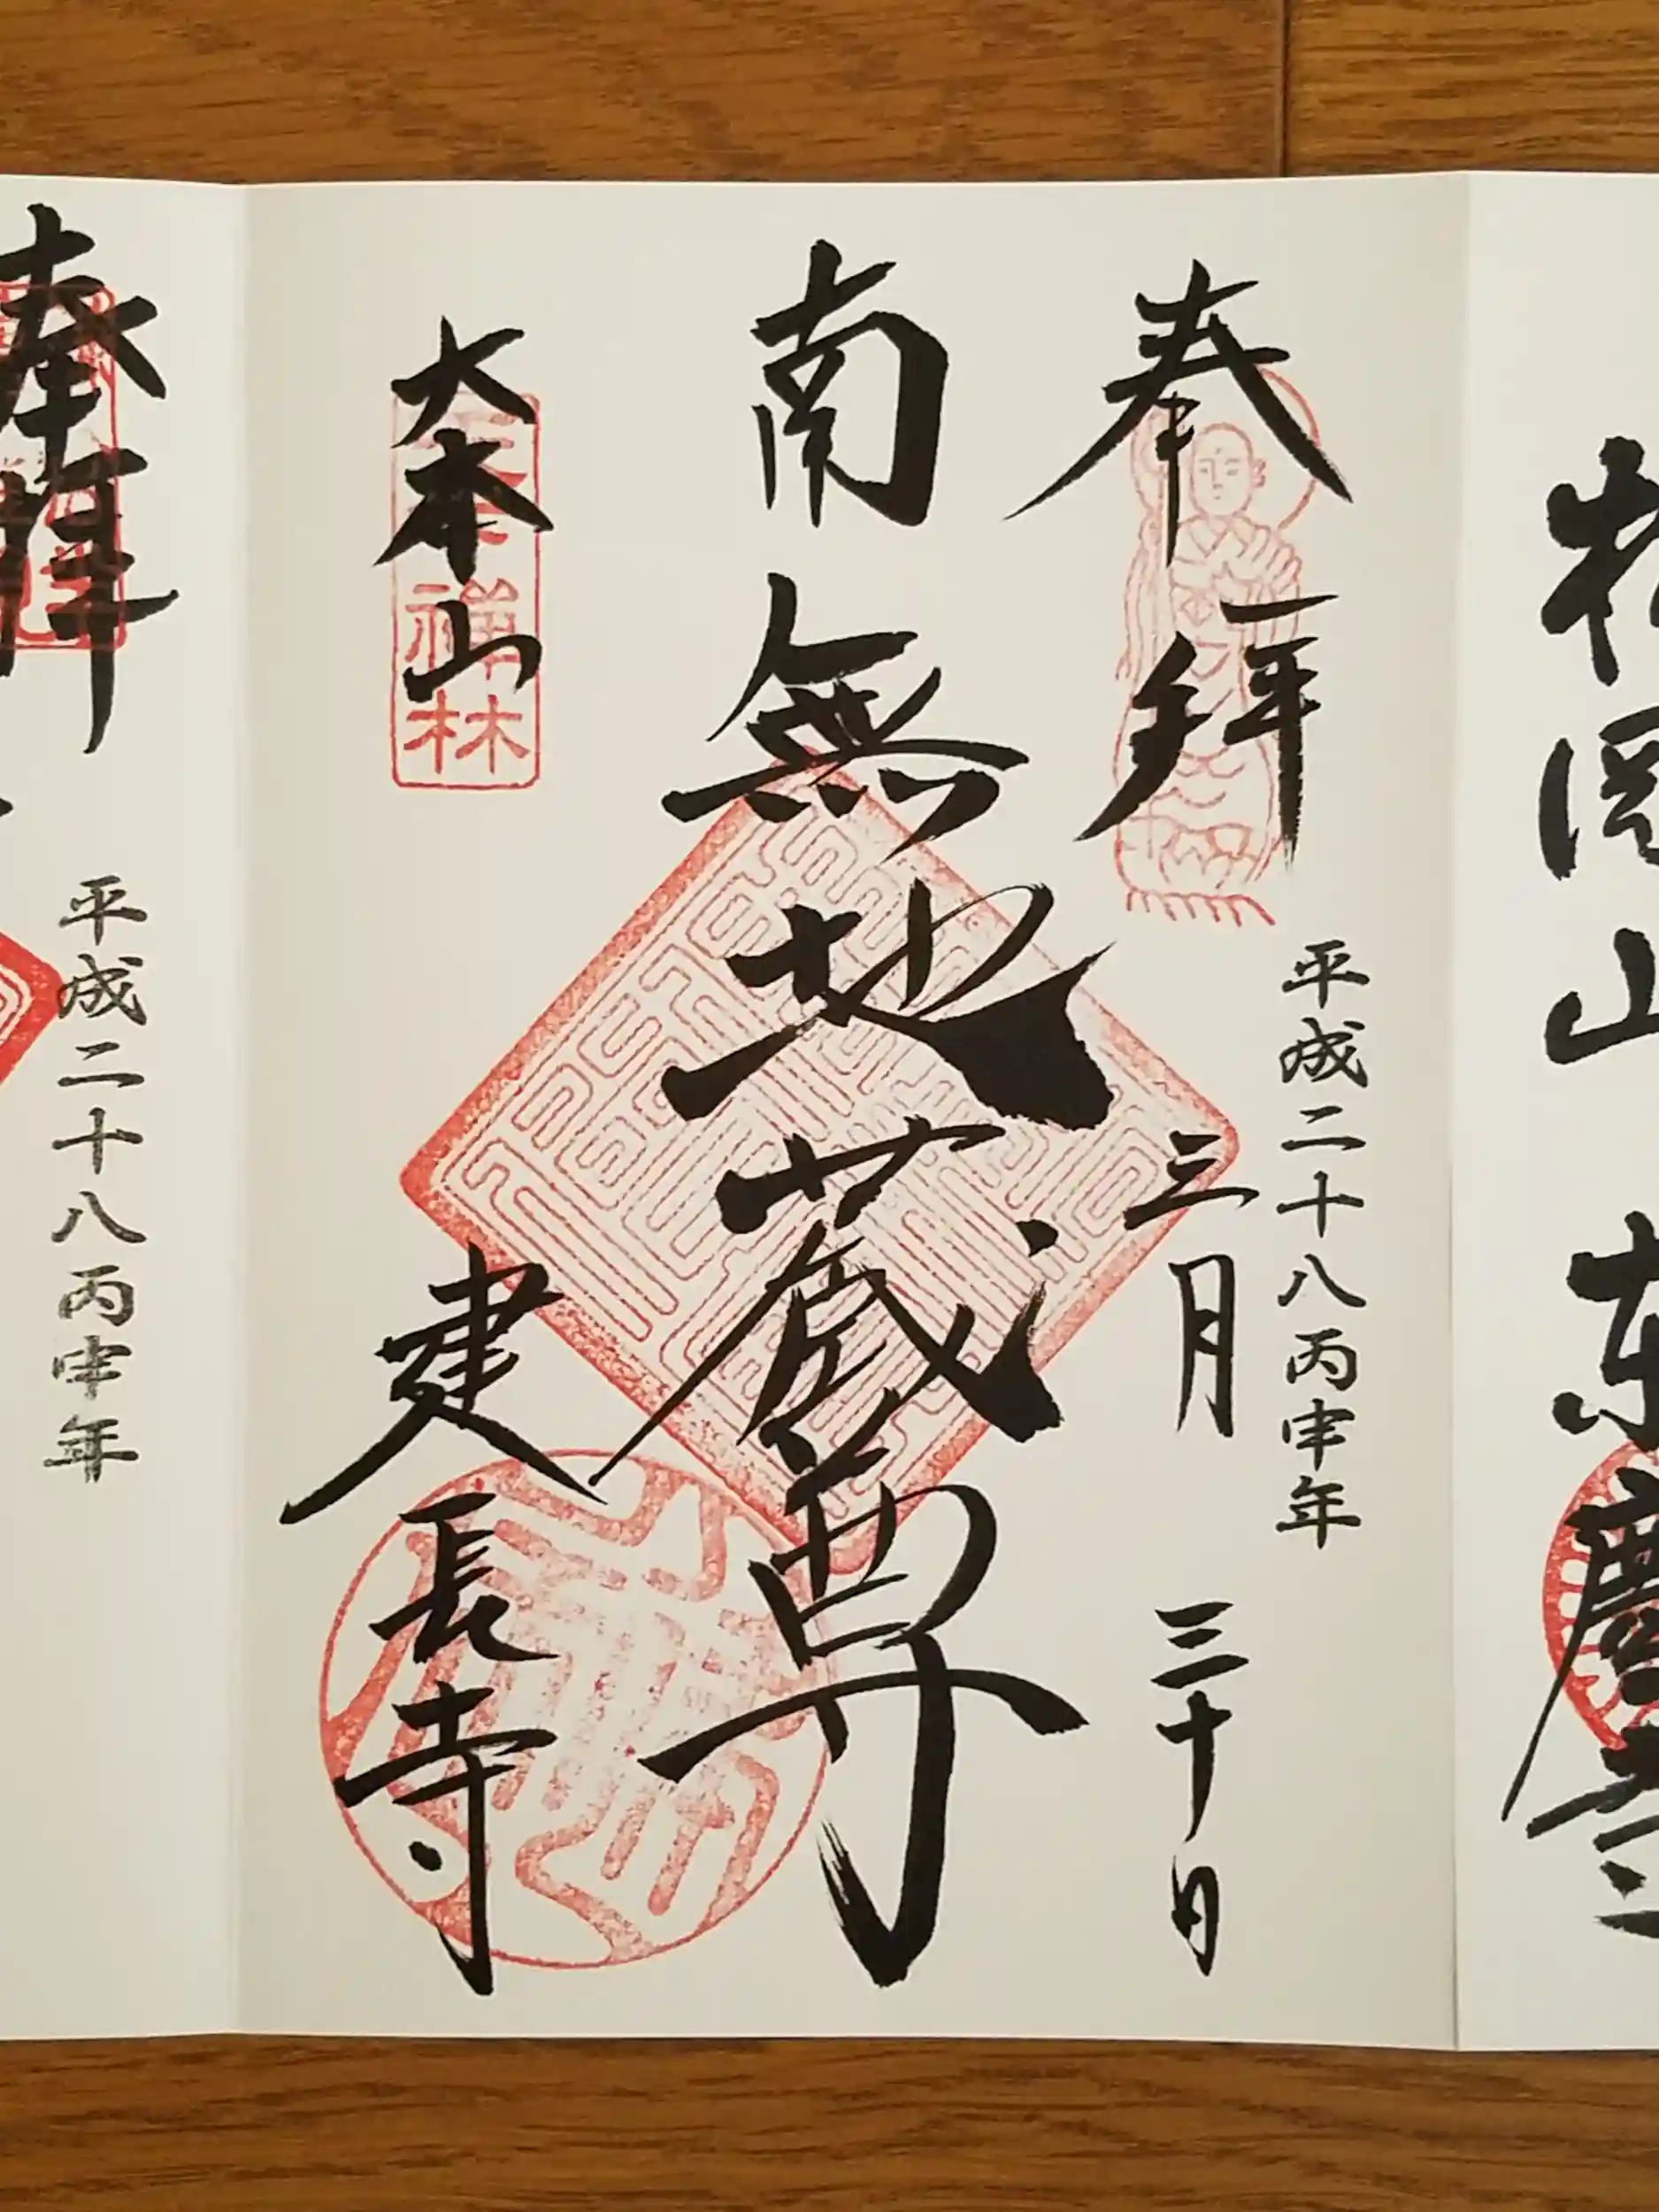 松岡山
東慶寺
奉拝
平成二十八丙申年
三月三十日
南無地蔵尊
大本山
建長寺
禅林
奉拝
平成二十八丙申年